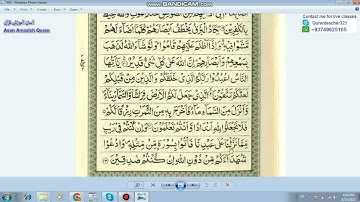 WWW.BANDICAM.COM
Asan Amozish Quran
Contact me for live classes
Quranteacher321
+93749625105
يَخْطَفُ اَبْصَارَهُمْ كُلَّمَاۤ اَضَآءَ لَهُمْ
مَّشَوْا فِيْهِ وَاِذَاۤ اَظْلَمَ عَلَيْهِمْ قَامُوْا وَلَوْ شَآءَ اللّٰهُ لَذَهَبَ
بِسَمْعِهِمْ وَاَبْصَارِهِمْ اِنَّ اللّٰهَ عَلٰى كُلِّ شَيْءٍ قَدِيْرٌ يٰۤاَيُّهَا
النَّاسُ اعْبُدُوْا رَبَّكُمُ الَّذِيْ خَلَقَكُمْ وَالَّذِيْنَ مِنْ قَبْلِكُمْ
لَعَلَّكُمْ تَتَّقُوْنَ الَّذِيْ جَعَلَ لَكُمُ الْاَرْضَ فِرَاشًا وَّالسَّمَآءَ بِنَآءً
وَّاَنْزَلَ مِنَ السَّمَآءِ مَآءً فَاَخْرَجَ بِهٖ مِنَ الثَّمَرٰتِ رِزْقًا لَّكُمْ
فَلَا تَجْعَلُوْا لِلّٰهِ اَنْدَادًا وَّاَنْتُمْ تَعْلَمُوْنَ وَاِنْ كُنْتُمْ فِيْ رَيْبٍ
مِّمَّا نَزَّلْنَا عَلٰى عَبْدِنَا فَاْتُوْا بِسُوْرَةٍ مِّنْ مِّثْلِهٖ وَادْعُوْا
شُهَدَآءَكُمْ مِّنْ دُوْنِ اللّٰهِ اِنْ كُنْتُمْ صٰدِقِيْنَ